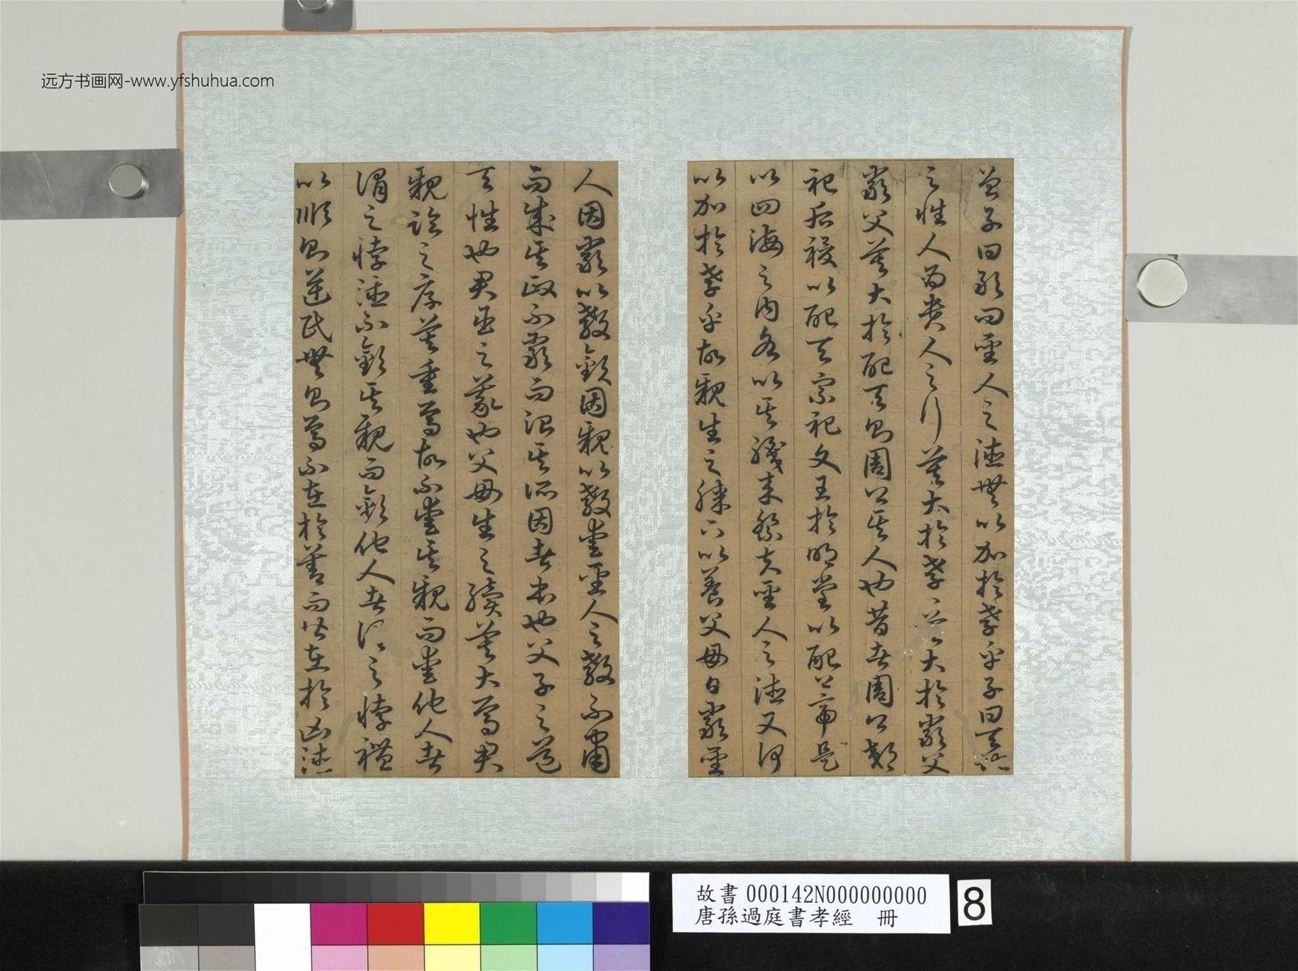 远方书画网-www.yfshuhua.com
曾子曰敢問聖人之德無以加於孝乎子曰天地
之性人為貴人之行莫大於孝孝莫大於嚴父
嚴父莫大於配天則周公其人也昔者周公郊
祀后稷以配天宗祀文王於明堂以配上帝是
以四海之內各以其職來祭夫聖人之德又何
以加於孝乎故親生之膝下以養父母日嚴聖
人因嚴以教敬因親以教愛聖人之教不肅
而成其政不嚴而治其所因者本也父子之道
天性也君臣之義也父母生之續莫大焉君
親臨之厚莫重焉故不愛其親而愛他人者
謂之悖德不敬其親而敬他人者謂之悖禮
以順則逆民無則焉不在於善而皆在於凶德
故書 000142N000000000
唐孫過庭書孝經 冊
8